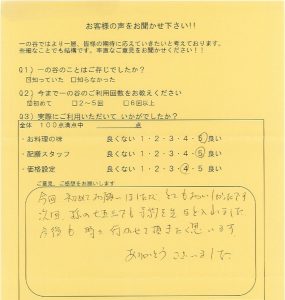 お客様の声をお聞かせ下さい!!
一の谷ではより一層、皆様の期待に応えていきたいと考えております。
些細なことでも結構です。率直なご意見をお聞かせください!!
Q1) 一の谷のことはご存じでしたか?
□知っていた □知らなかった
Q2) 今まで一の谷のご利用回数をお教えください
□初めて □2~5回 □6回以上
Q3) 実際にご利用いただいて いかがでしたか?
全体 100点満点中 点
・お料理の味 良くない 1・2・3・4・5 良い
・配膳スタッフ 良くない 1・2・3・4・5 良い
・価格設定 良くない 1・2・3・4・5 良い
ご意見、ご感想をお願いします
今回 初めてお願いしました とてもおいしかったです
次回 孫の七五三でも 予約を
今後も 時々 行かせて頂きたく思います
ありがとう ございました